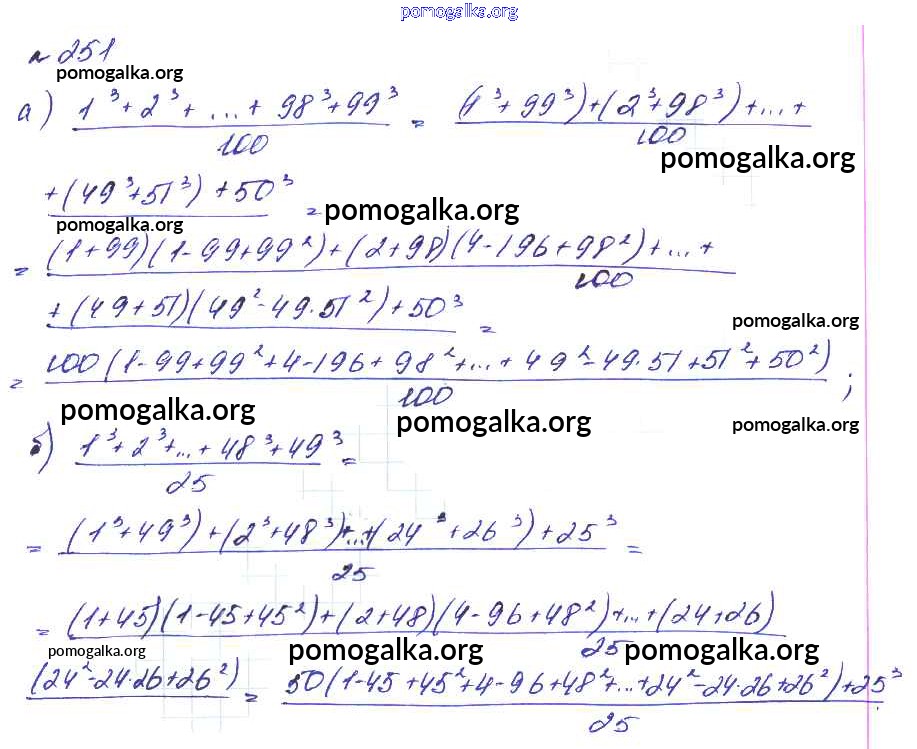 pomogalka.org
№ 251
pomogalka.org
а) (1³+2³+...+98³+99³)/100 = ((1³+99³)+(2³+98³)+...+
pomogalka.org
+(49³+51³)+50³)/100 =
pomogalka.org
pomogalka.org
= ((1+99)(1-99+99²)+(2+98)(4-196+98²)+...+
+(49+51)(49²-49·51²)+50³)/100 =
pomogalka.org
= 100(1-99+99²+4-196+98²+...+49²-49·51+51²+50²)/100 ;
pomogalka.org
pomogalka.org
pomogalka.org
б) (1³+2³+...+48³+49³)/25 =
= ((1³+49³)+(2³+48³)+...+(24³+26³)+25³)/25 =
= ((1+45)(1-45+45²)+(2+48)(4-96+48²)+...+(24+26)
pomogalka.org
pomogalka.org
pomogalka.org
(24²-24·26+26²))/25 = (50(1-45+45²+4-96+48²+...+24²-24·26+26²)+25³)/25